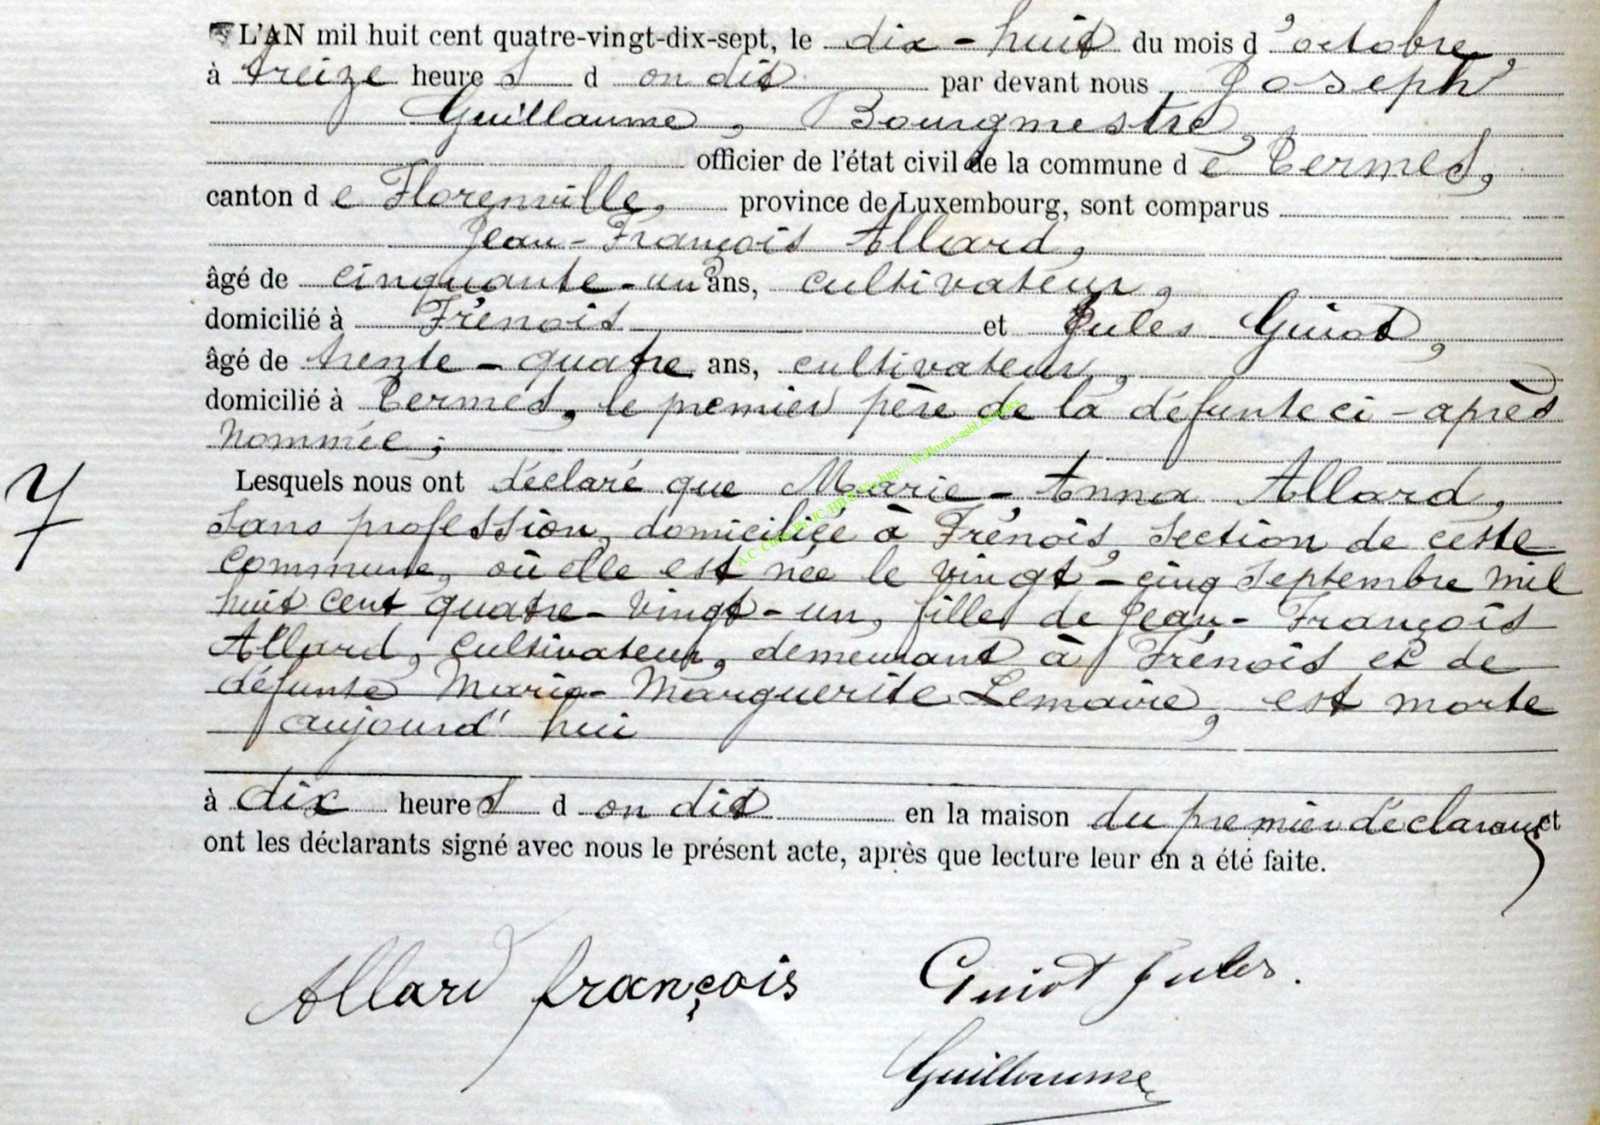 L'AN mil huit cent quatre-vingt-dix-sept, le dix-huit du mois d'octobre,
à treize heures d on dit par devant nous Joseph
Guillaume, Bourgmestre,
officier de l'état civil de la commune de Termes,
canton de Florenville, province de Luxembourg, sont comparus
Jean-François Allard,
âgé de cinquante-un ans, cultivateur,
domicilié à Frénois et Jules Guiot,
âgé de trente-quatre ans, cultivateur,
domicilié à Termes, le premier père de la défunte ci-après
nommée;
7
Lesquels nous ont déclaré que Marie-Anna Allard,
sans profession, domiciliée à Frénois, section de cette
commune, où elle est née le vingt-cinq septembre mil
huit cent quatre-vingt-un, fille de Jean-François
Allard, cultivateur, demeurant à Frénois et de
défunte Marie-Marguerite Lemaire, est morte
aujourd'hui
à dix heures d on dit en la maison du premier déclarant et
ont les déclarants signé avec nous le présent acte, après que lecture leur en a été faite.
Allard françois Guiot Jules.
Guillaume